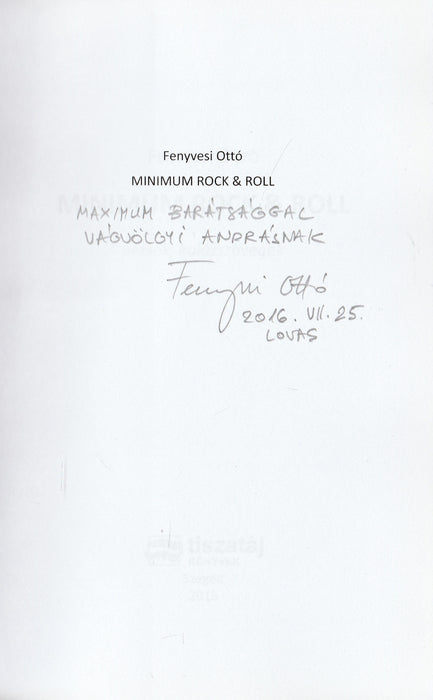 Fenyvesi Ottó
MINIMUM ROCK & ROLL
MAXIMUM BARÁTSÁGGAL
VÁGVÖLGYI ANDRÁSNAK
Fenyvesi Ottó
2016. VII. 25.
LOVAS
tiszatáj
KÖNYVEK
Szeged
2015